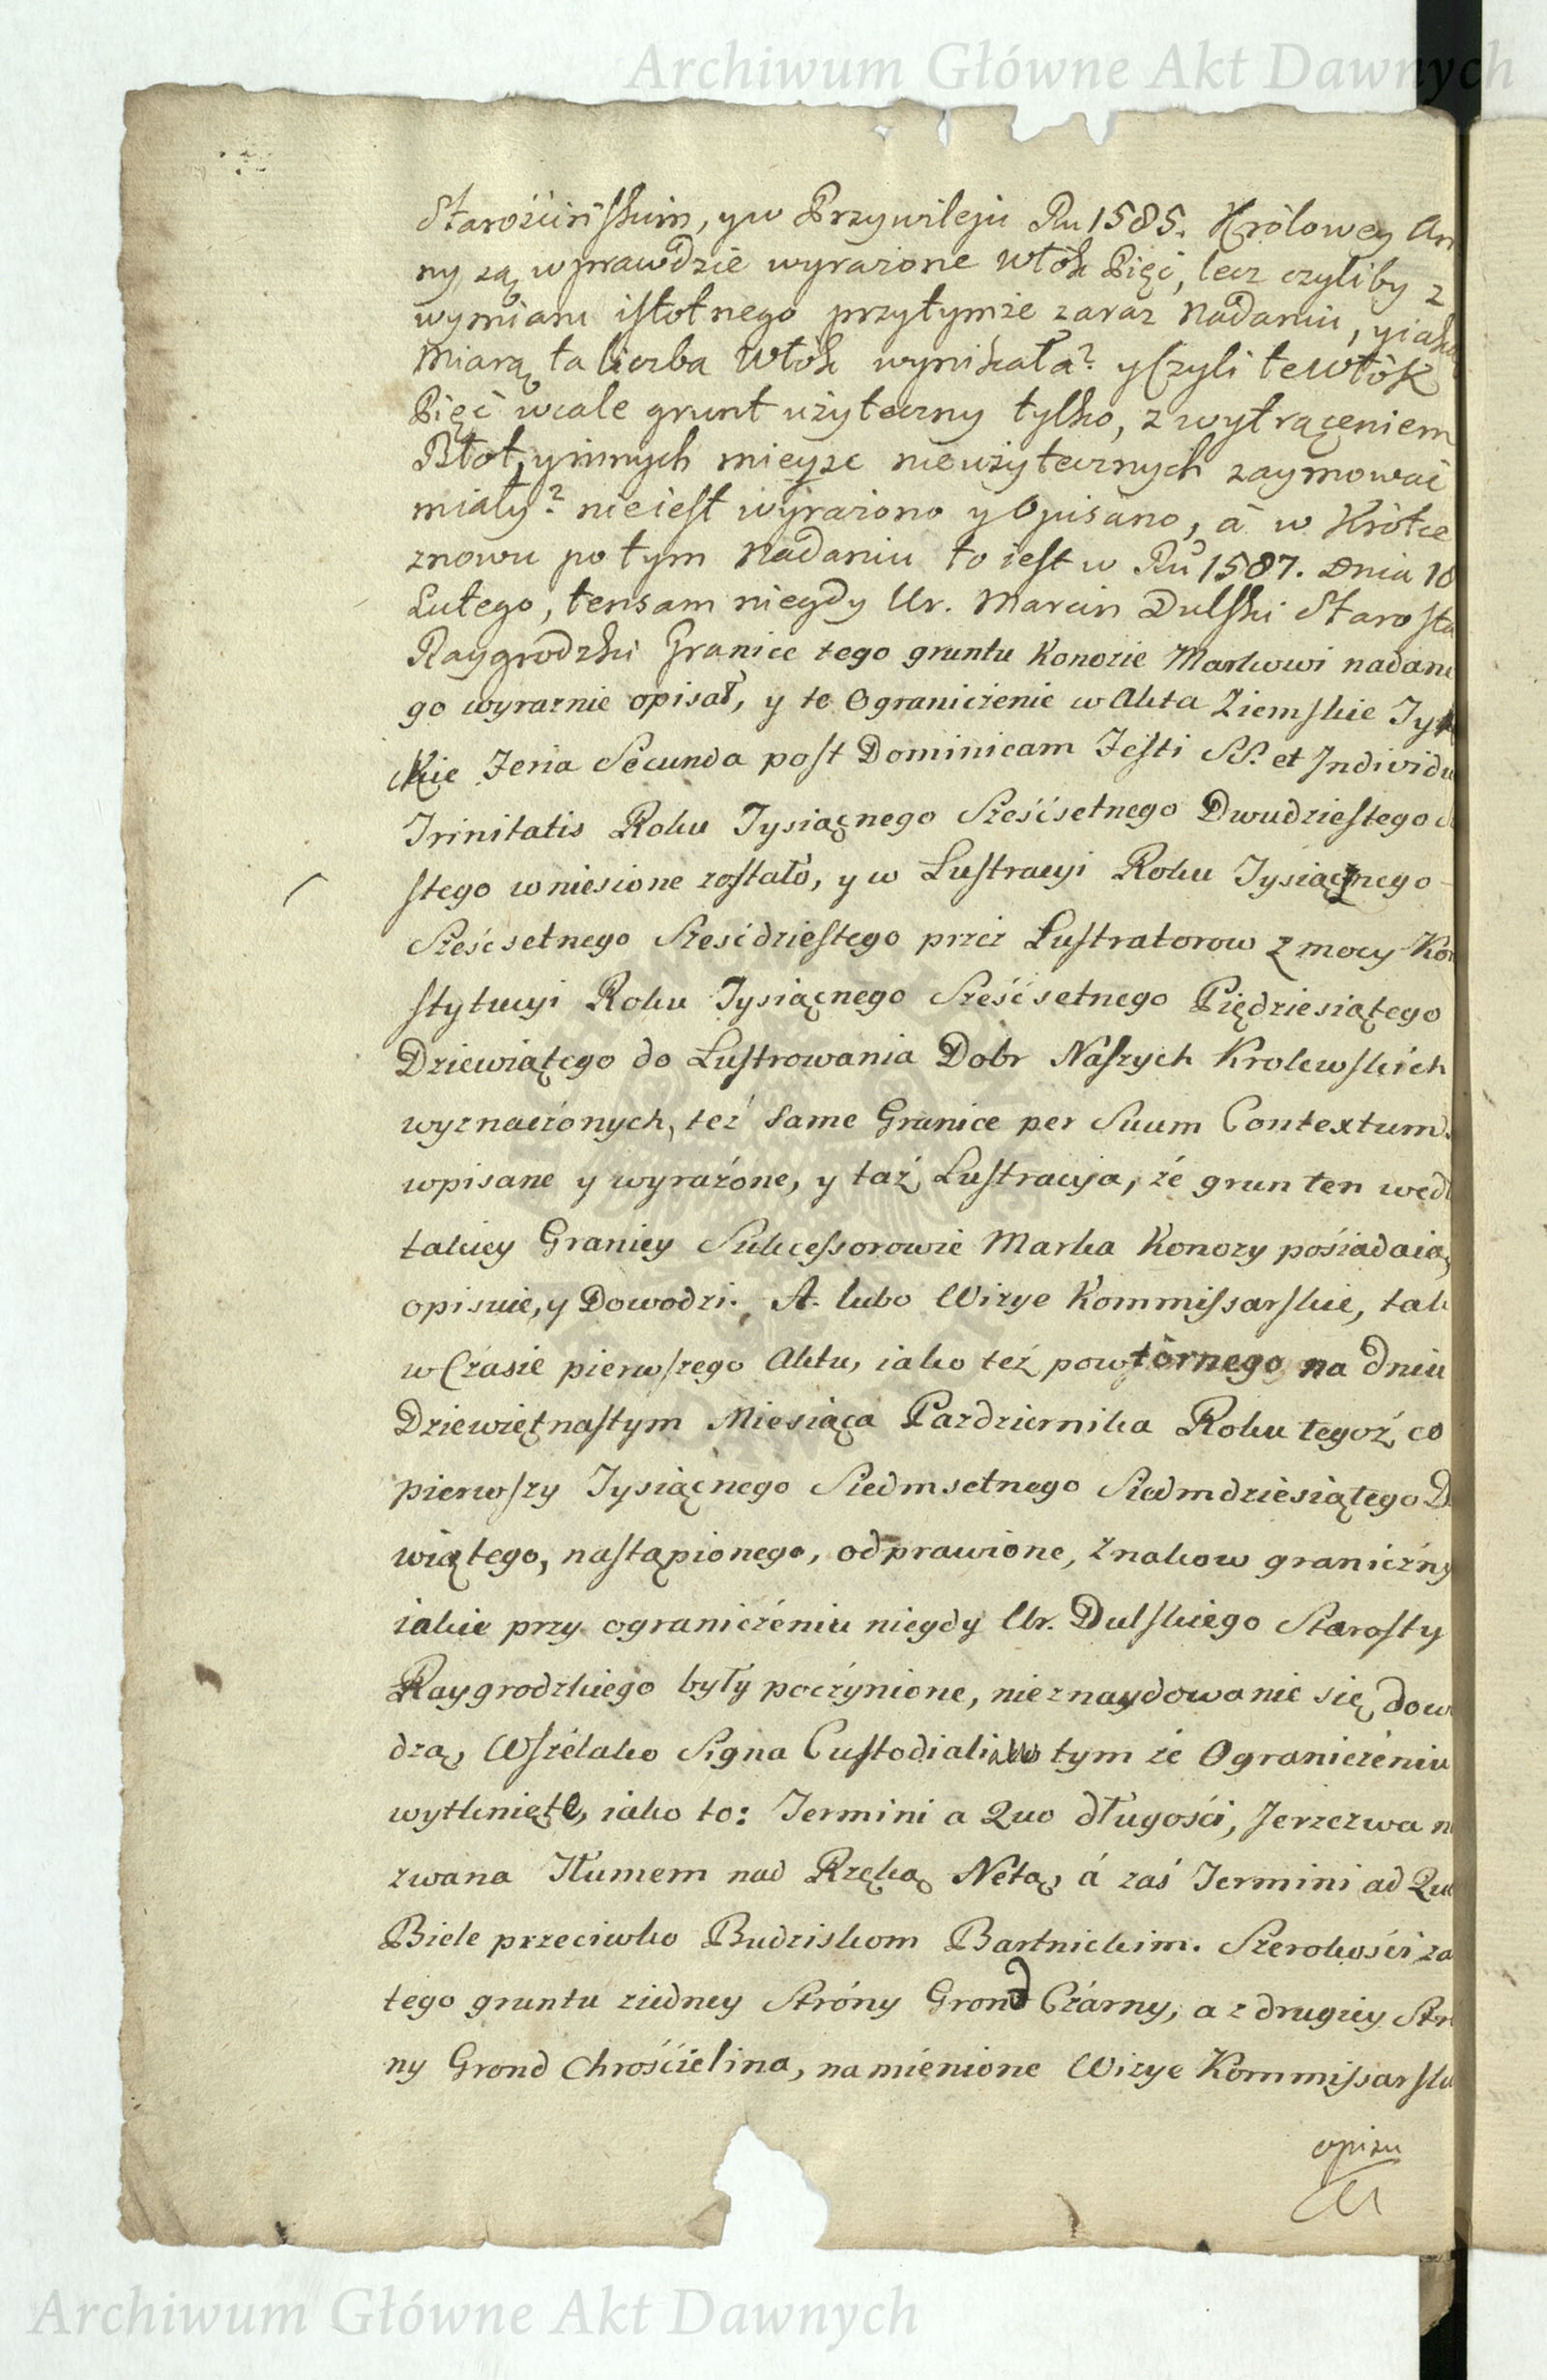 Archiwum Główne Akt Dawnych
Starościńskim, y w Przywileju Ru 1585. Królowey An
ny, są wprawdzie wyrażone Włók Pięć, lecz czyliby z
wymiaru istotnego przytymże zaraz nadaniu, y iaką
Miarą ta liczba Włók wynikała? y Czyli te Włók
Pięć wcale grunt użyteczny tylko, z wytrąceniem
Błot, y innych mieysc nieużytecznych zaymować
miały? nie iest wyrażono y Opisano, á w Krótce
znowu po tym Nadaniu to iest w Ru 1587. Dnia 10
Lutego, tensam niegdy Ur. Marcin Dulski Starosta
Raygrodzki Granice tego gruntu Konozie Markowi nadane
go wyraznie opisał, y te Ograniczenie w Akta Ziemskie Ty
ckie Feria Secunda post Dominicam Festi SS. et Individu
Trinitatis Roku Tysiącnego Sześćsetnego Dwudziestego
stego wniesione zostało, y w Lustracyi Roku Tysiącnego
Sześćsetnego Szescdziestego przez Lustratorow z mocy Kon
stytucyi Roku Tysiącnego Sześćsetnego Piędziesiątego
Dziewiątego do Lustrowania Dobr Nászych Krolewskich
wyznaczónych, też same Granice per Suum Contextum
wpisane y wyrażóne, y taż Lustracyja, że grun ten wedł
takiey Graniey Sukcessorowie Marka Konozy pośiadaią,
opisuie, y Dowodzi. A. lubo Wizye Kommissarskie, tak
w Czasie pierwszego Aktu, iako też powtórnego na dniu
Dziewiętnastym Miesiąca Pazdziernika Roku tegoż co
pierwszy Tysiącnego Siedmsetnego Siedmdziesiątego D
wiątego, nastąpionego, odprawione, znakow graniczny
iakie przy ograniczéniu niegdy Ur. Dulskiego Starosty
Raygrodzkiego były poczynione, nieznaydowanie się dow
dzą, Wszélako Signa Custodiali tym że Ograniczéniu
wytknięte, iako to: Termini a Quo długości, Jerzezwa n
zwana Tłumem nad Rzęką Netą, á zaś Termini ad Qu
Biele przeciwko Budziskom Bartnickim. Szerokości za
tego gruntu ziedney Stróny Grond Czárny, a z drugiey Str
ny Grond Chrościelina, namiénione Wizye Kommissarsk
opisu
Archiwum Główne Akt Dawnych